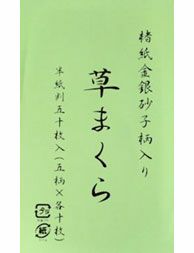 楮紙金銀砂子柄入り
草まくら
半紙判五十枚入（五柄×各十枚）
プラ
紙